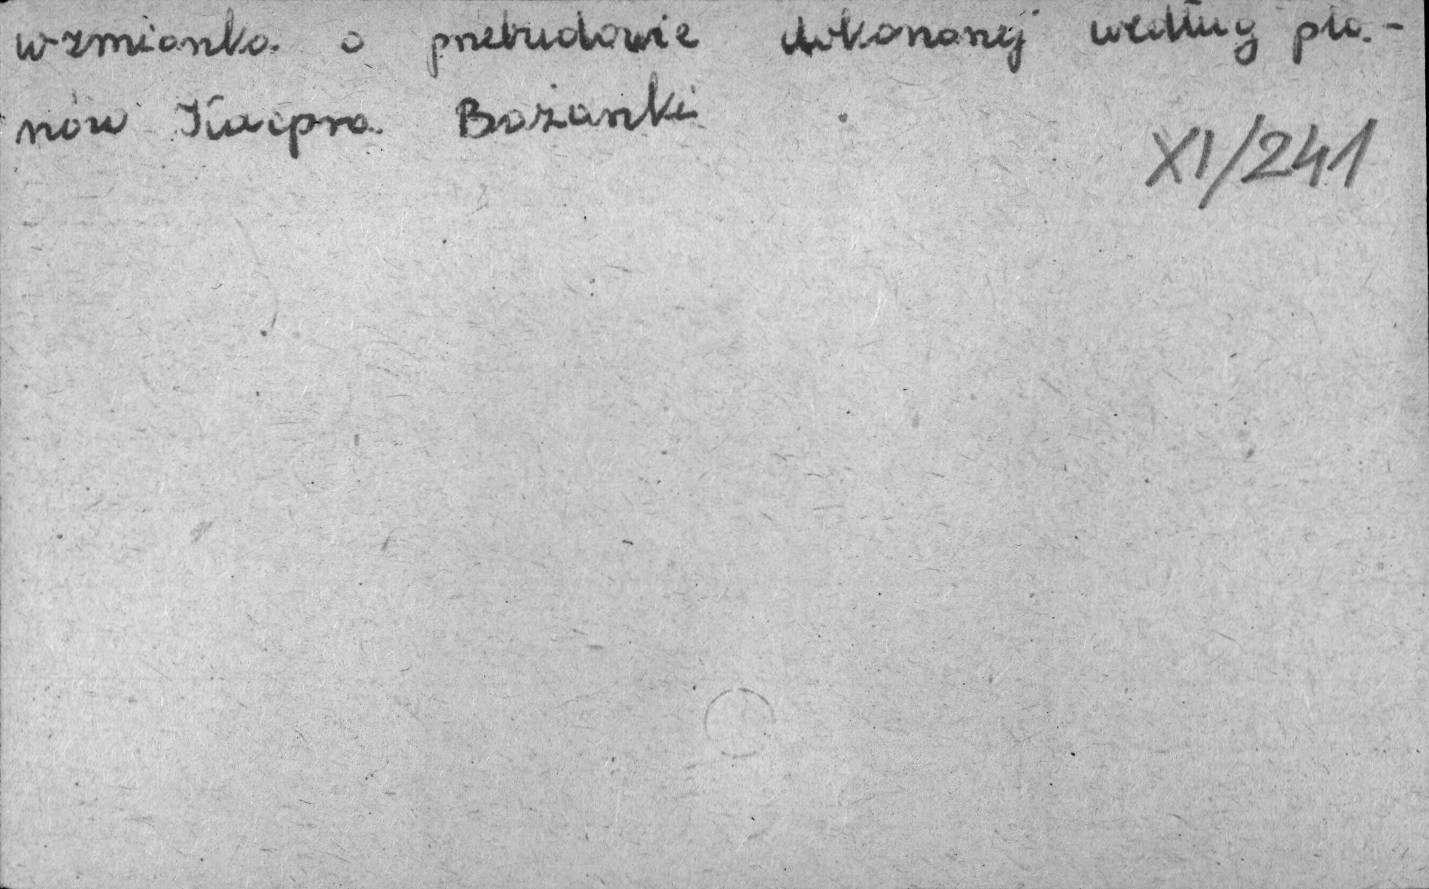 wzmianka o przebudowie dokonanej według pla-
nów Kacpra Bażanki
XI/241